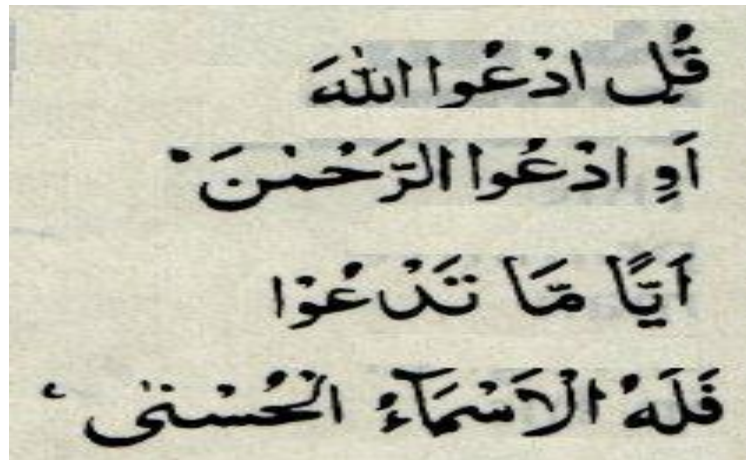 قُلِ ادْعُوا اللّٰهَ
اَوِ ادْعُوا الرَّحْمٰنَ ۚ
اَيًّا مَّا تَدْعُوْا
فَلَهُ الْاَسْمَآءُ الْحُسْنٰى ۚ